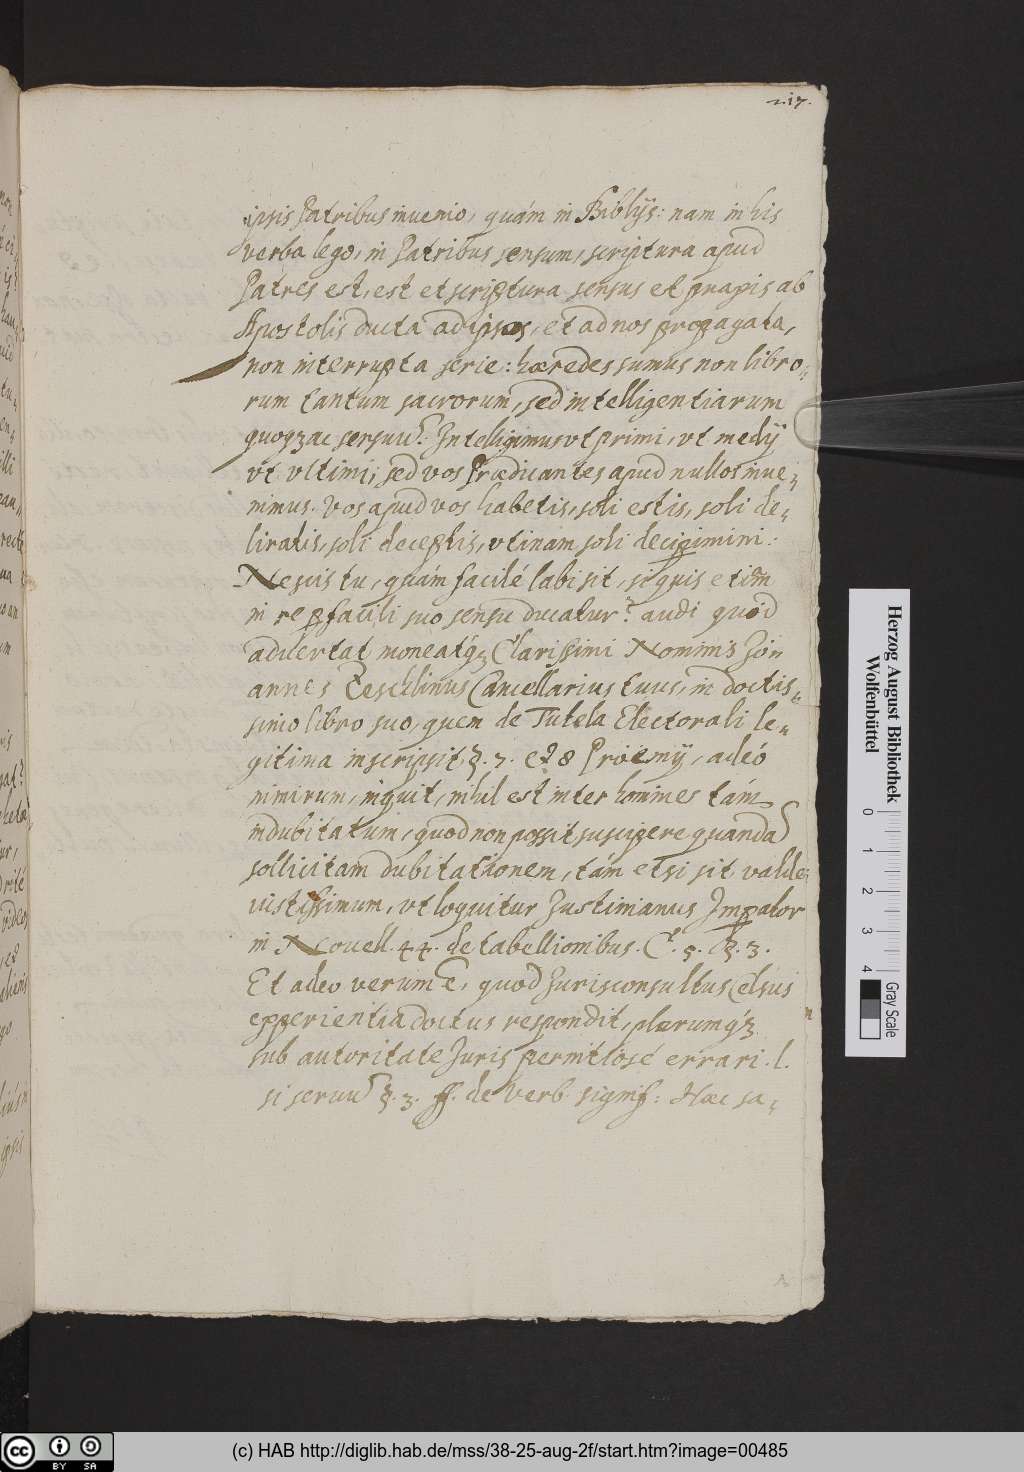 217.
ipsis Patribus invenio, quám in Biblijs: nam in his
verba lego, in Patribus sensum, scriptura apud
Patres est, est et scriptura sensus et praxis ab
Apostolis ducta ad ipsos, et ad nos propagata,
non interrupta serie: hæredes sumus non libro-
rum tantum sacrorum, sed intelligentiarum
quoqz ac sensuu. Intelligimus vt primi, vt medij
vt vltimi, sed vos Prædicantes apud nullos inue-
nimus. Vos apud vos habetis, soli estis, soli de-
liratis, soli deceptis, vtinam soli decipimini:
Nescis tu, quám facilé labi sit, si quis etiam
in re facili suo sensu ducatur? audi quid
aduertat moneatqz Clarissimi Nominis Jon
annes Zeschlinus Cancellarius tuus, in doctis-
simo libro suo, quem de Tutela Electorali le-
gitima inscripsit, §. 7. et 8 Proemij, adeó
nimirum, inquit, nihil est inter homines tám
indubitatum, quod non possit suscipere quandã
sollicitam dubitationem, tám etsi sit valde
iustissimum, vt loquitur Justinianus Impator
in Novell. 44. de tabellionibus. C. 5. §. 3.
Et adeo verum e, quod Jurisconsultus Celsus
experientia doctus respondit, plærumqz
sub autoritate Juris pernitiosé errari. l.
si seruu §. 3. ff. de verb. signif: Hæc sa-
Herzog August Bibliothek
Wolfenbüttel
0 1 2 3 4
Gray Scale
cc BY SA
(c) HAB http://diglib.hab.de/mss/38-25-aug-2f/start.htm?image=00485